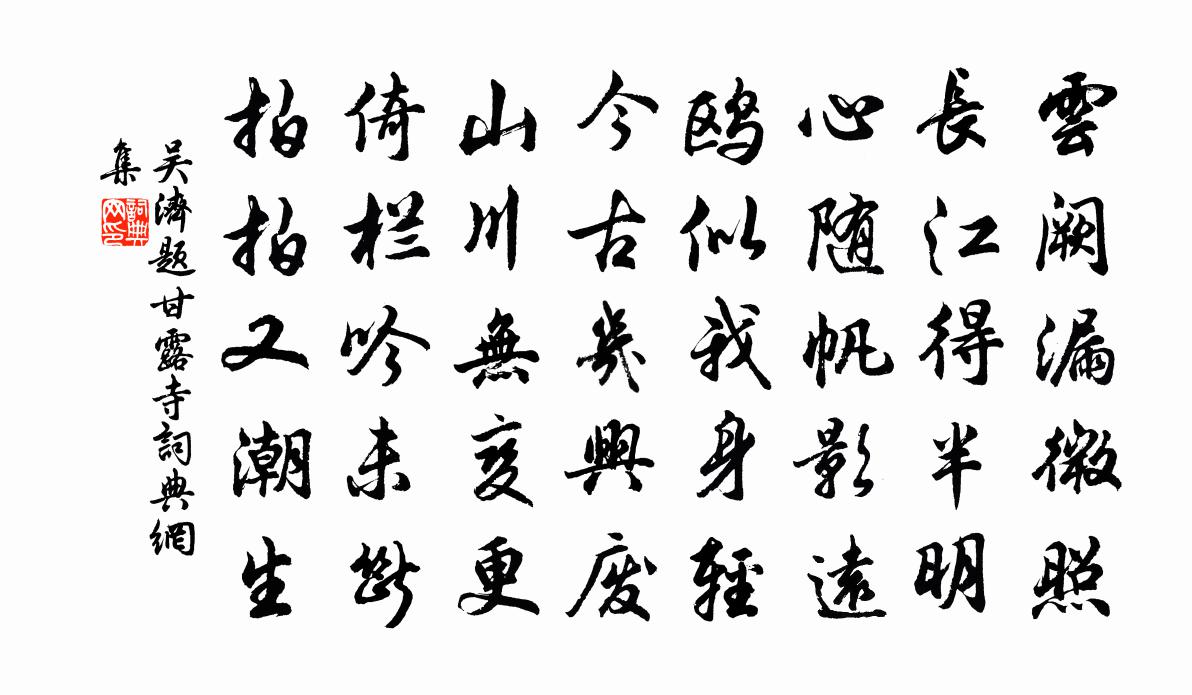 雲闕漏微照
長江得半明
心随帆影遠
鸥似我身輕
今古幾興废
山川無变更
倚栏吟未斷
拍拍又潮生
吴濟题甘露寺詞典網
集
詞典网印